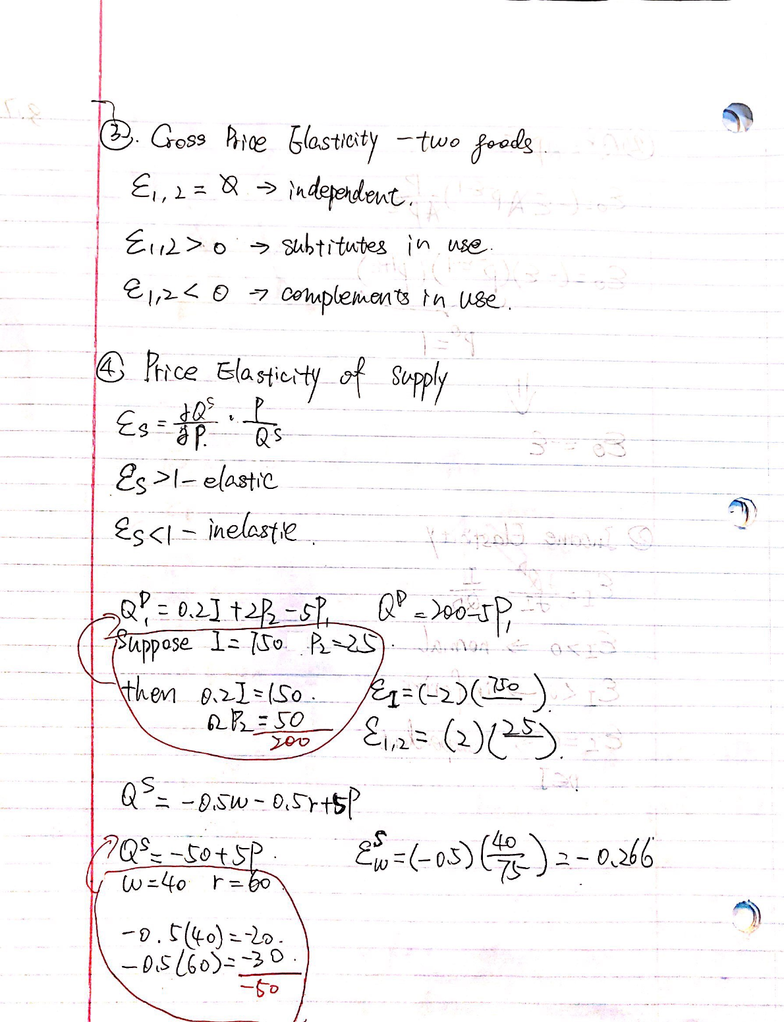 ③. Cross Price Elasticity – two goods
ε1,2 = 0 → independent.
ε1,2 > 0 → subtitutes in use.
ε1,2 < 0 → complements in use.
④ Price Elasticity of supply
εs = ∂Q^S/∂P · P/Q^S
εs >1 – elastic
εs <1 – inelastic.
Q^D_1 = 0.2I + 2P2 – 5P1 Q^D = 200-5P1
Suppose I = 750 P2 = 25
then 0.2I = 150. εI = (-2)(750/ )
2P2 = 50 ε1,2 = (2)(25/ ).
200
Q^S = -0.5w - 0.5r + 5P
Q^S = -50 + 5P. ε^S_w = (-0.5)(40/75) = -0.266
w=40 r=60
-0.5(40) = -20.
-0.5(60) = -30.
-50